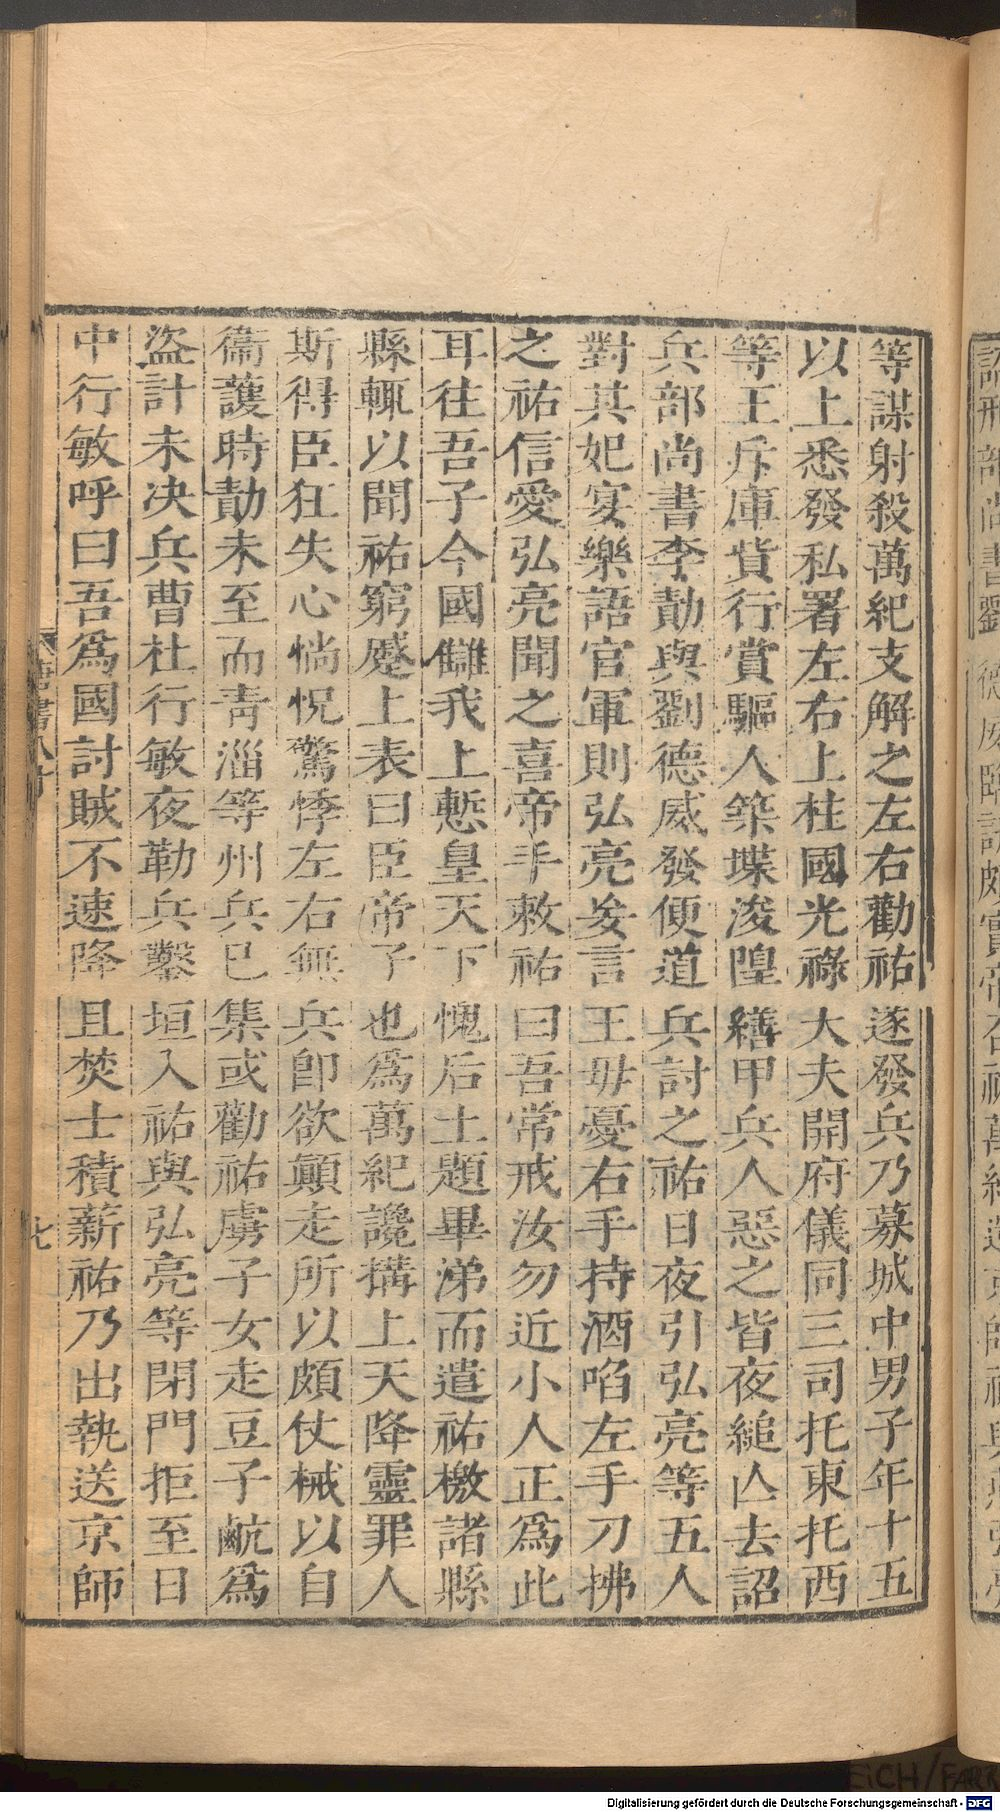 等謀射殺萬紀支解之左右勸祐遂發兵乃募城中男子年十五
以上悉發私署左右上柱國光祿大夫開府儀同三司托東托西
等王斥庫貲行賞驅人築堞浚隍繕甲兵人惡之皆夜縋亾去詔
兵部尚書李勣與劉德威發便道兵討之祐日夜引弘亮等五人
對其妃宴樂語官軍則弘亮妄言王毋憂右手持酒啗左手刀拂
之祐信愛弘亮聞之喜帝手敕祐曰吾常戒汝勿近小人正為此
耳往吾子今國讎我上慙皇天下愧后土題畢涕而遣祐檄諸縣
縣輒以聞祐窮蹙上表曰臣帝子也爲萬紀讒搆上天降靈罪人
斯得臣狂失心惝怳驚悸左右無兵卽欲顚走所以頗仗械以自
衞護時勣未至而靑淄等州兵已集或勸祐虜子女走豆子䴚爲
盜計未决兵曹杜行敏夜勒兵鑿垣入祐與弘亮等閉門拒至日
中行敏呼曰吾爲國討賊不速降且焚士積薪祐乃出執送京師
七
Digitalisierung gefördert durch die Deutsche Forschungsgemeinschaft - DFG